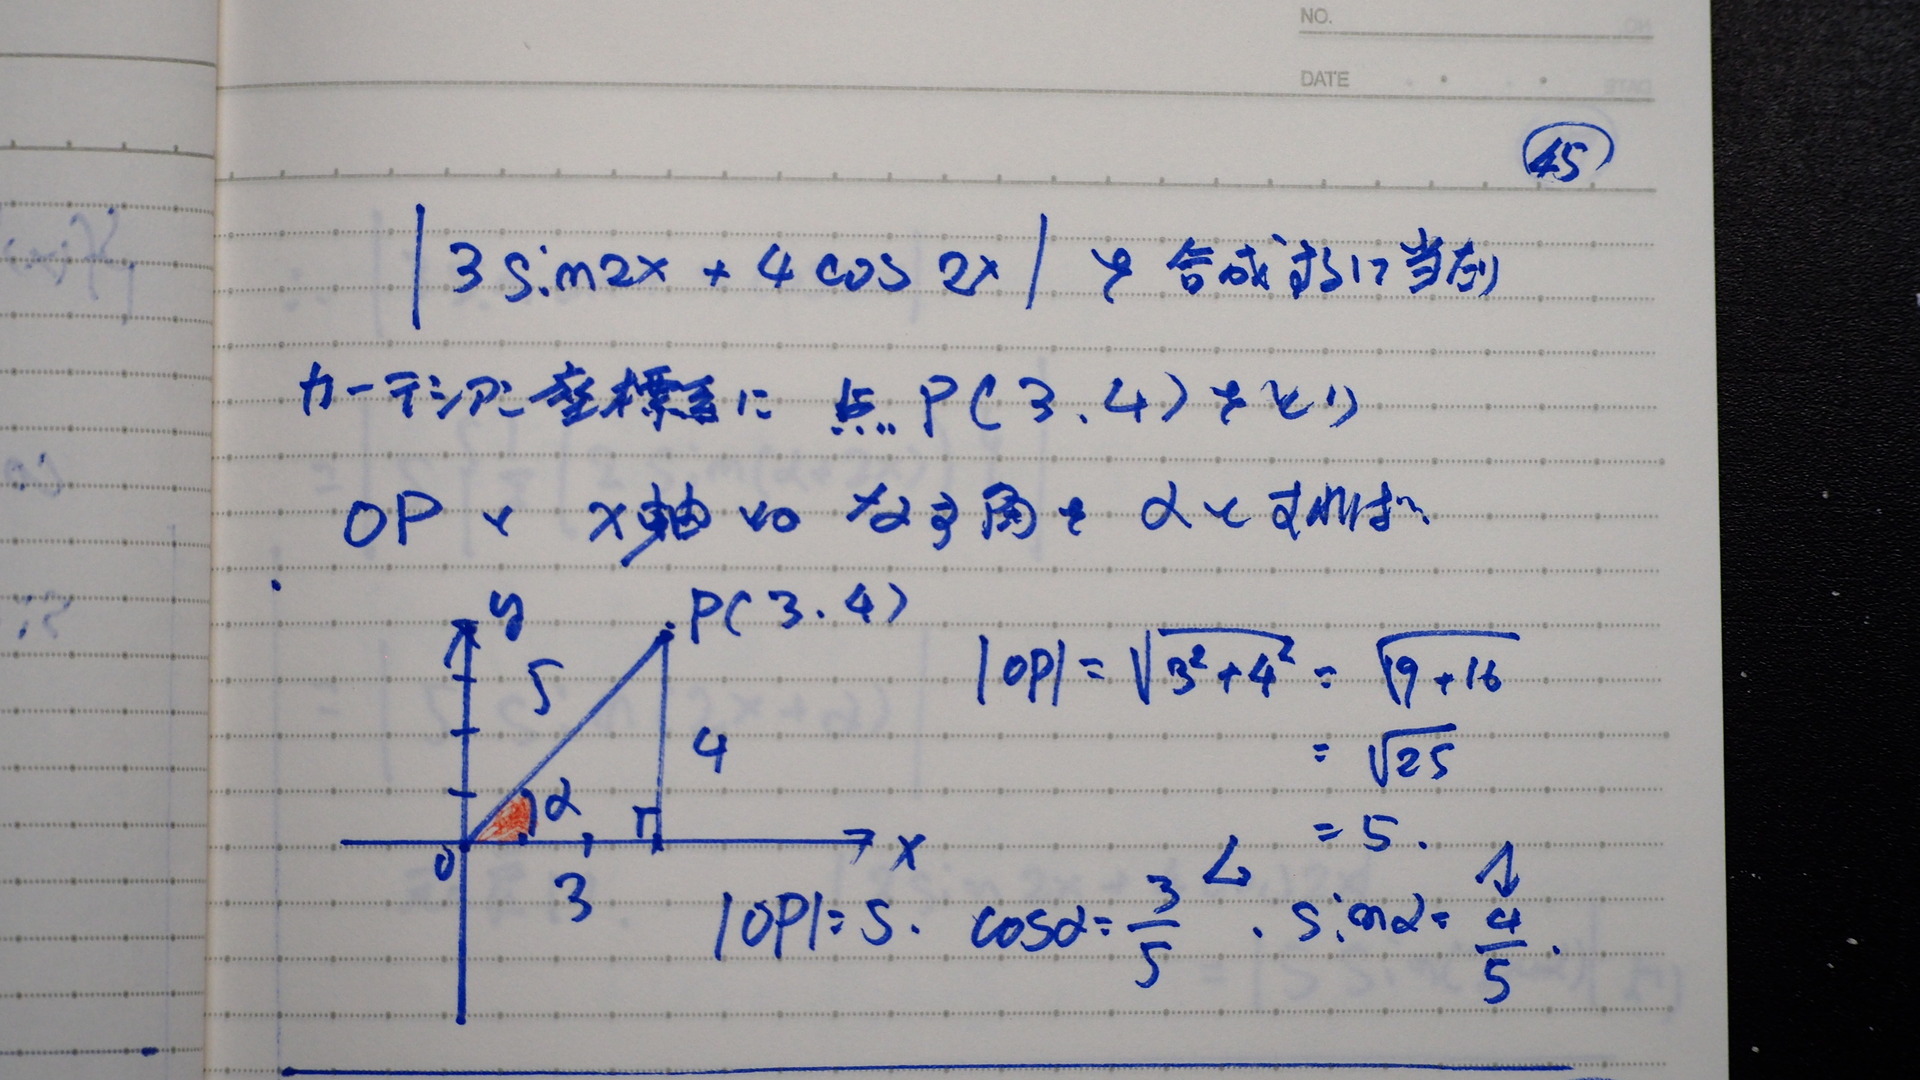 NO.
DATE
45
|3 sin2x + 4 cos 2x| を 合成するに当たり
カーテシアン座標系に 点 P(3.4)をとり
OP と x軸との なす角を αとすれば
y
P(3.4)
5
|OP| = √3²+4² = √9+16
4
= √25
α
= 5.
0
x
3
|OP|=5. cosα=3/5 . sinα=4/5.